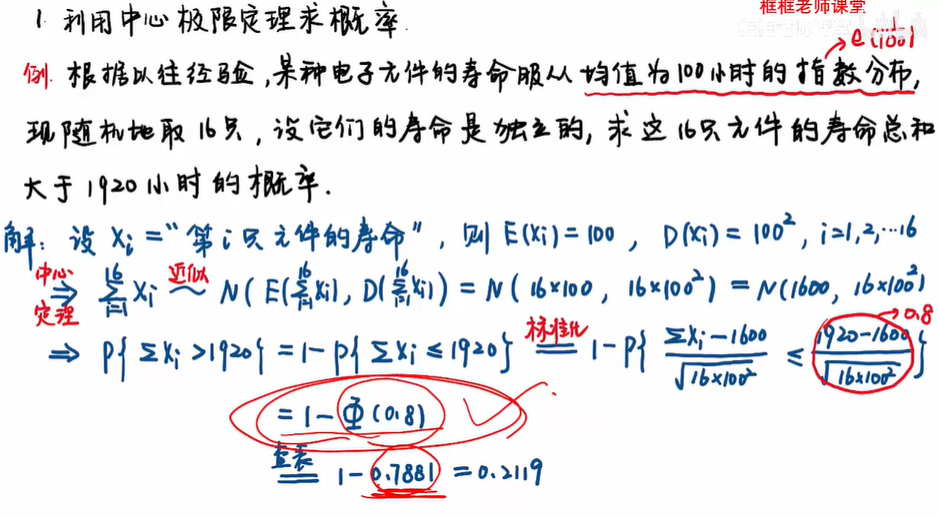 框框老师课堂
1. 利用中心极限定理求概率.
e(100)
例. 根据以往经验,某种电子元件的寿命服从均值为100小时的指数分布,
现随机地取16只,设它们的寿命是独立的,求这16只元件的寿命总和
大于1920小时的概率.
解: 设 Xi = "第i只元件的寿命", 则 E(Xi)=100, D(Xi)=100², i=1,2,…16
中心定理 ⇒ ∑_{i=1}^{16} Xi 近似~ N( E(∑_{i=1}^{16} Xi), D(∑_{i=1}^{16} Xi)) = N(16×100, 16×100²) = N(1600, 16×100²)
⇒ P{ ∑Xi >1920} = 1-P{ ∑Xi ≤1920} 标准化= 1-P{ (∑Xi-1600)/√(16×100²) ≤ (1920-1600)/√(16×100²) } →0.8
= 1-Φ(0.8)
查表= 1-0.7881 = 0.2119